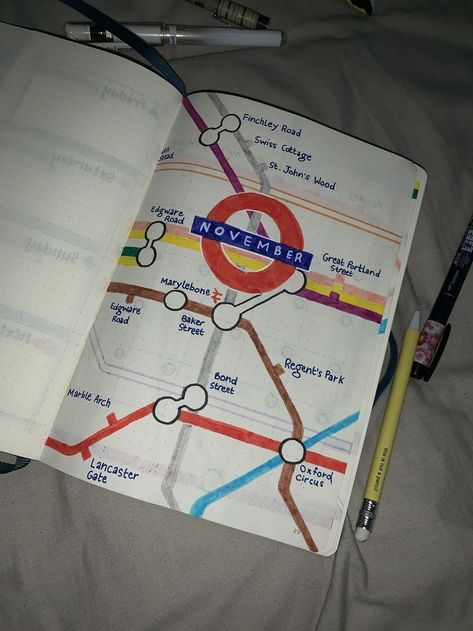 Finchley Road
Swiss Cottage
St. John's Wood
Edgware
Road
NOVEMBER
Great Portland
Street
Marylebone
Baker
Street
Edgware
Road
Regent's Park
Bond
Street
Marble Arch
Lancaster
Gate
Oxford
Circus
this is not a pencil
Friday
Saturday
Sunday